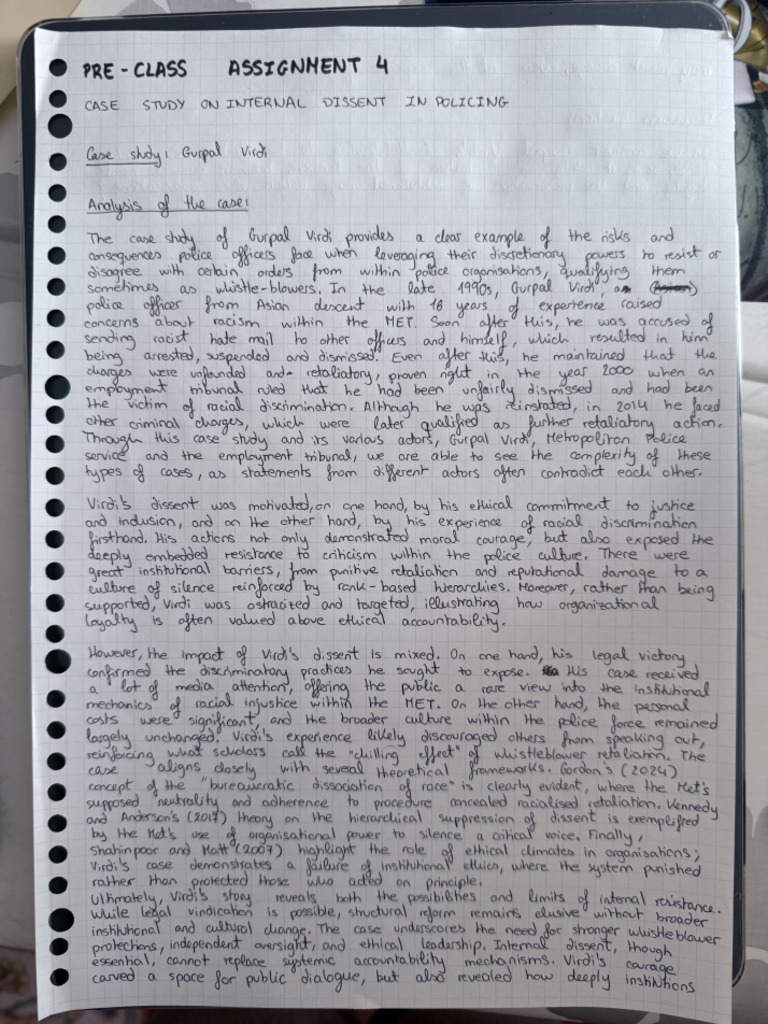 PRE-CLASS ASSIGNMENT 4
CASE STUDY ON INTERNAL DISSENT IN POLICING
Case study: Gurpal Virdi
Analysis of the case:
The case study of Gurpal Virdi provides a clear example of the risks and
consequences police officers face when leveraging their discretionary powers to resist or
disagree with certain orders from within police organisations, qualifying them
sometimes as whistle-blowers. In the late 1990s, Gurpal Virdi, a
police officer from Asian descent with 16 years of experience raised
concerns about racism within the MET. Soon after this, he was accused of
sending racist hate mail to other officers and himself, which resulted in him
being arrested, suspended and dismissed. Even after this, he maintained that the
charges were unfounded and retaliatory, proven right in the year 2000 when an
employment tribunal ruled that he had been unfairly dismissed and had been
the victim of racial discrimination. Although he was reinstrated, in 2014 he faced
other criminal charges, which were later qualified as further retaliatory action.
Through this case study and its various actors, Gurpal Virdi, Metropolitan Police
service and the employment tribunal, we are able to see the complexity of these
types of cases, as statements from different actors often contradict each other.
Virdi's dissent was motivated, on one hand, by his ethical commitment to justice
and inclusion, and on the other hand, by his experience of racial discrimination
firsthand. His actions not only demonstrated moral courage, but also exposed the
deeply embedded resistance to criticism within the police culture. There were
great institutional barriers, from punitive retaliation and reputational damage to a
culture of silence reinforced by rank-based hierarchies. Moreover, rather than being
supported, Virdi was ostracized and targeted, illustrating how organizational
loyalty is often valued above ethical accountability.
However, the impact of Virdi's dissent is mixed. On one hand, his legal victory
confirmed the discriminatory practices he sought to expose. His case received
a lot of media attention, offering the public a rare view into the institutional
mechanics of racial injustice within the MET. On the other hand, the personal
costs were significant, and the broader culture within the police force remained
largely unchanged. Virdi's experience likely discouraged others from speaking out,
reinforcing what scholars call the "chilling effect" of whistleblower retaliation. The
case aligns closely with several theoretical frameworks. Gordon's (2024)
concept of the "bureaucratic dissociation of race" is clearly evident, where the Met's
supposed neutrality and adherence to procedure concealed racialised retaliation. Kennedy
and Anderson's (2017) theory on the hierarchical suppression of dissent is exemplified
by the Met's use of organisational power to silence a critical voice. Finally,
Shahinpoor and Matt (2007) highlight the role of ethical climates in organisations;
Virdi's case demonstrates a failure of institutional ethics, where the system punished
rather than protected those who acted on principle.
Ultimately, Virdi's story reveals both the possibilities and limits of internal resistance.
While legal vindication is possible, structural reform remains elusive without broader
institutional and cultural change. The case underscores the need for stronger whistleblower
protections, independent oversight, and ethical leadership. Internal dissent, though
essential, cannot replace systemic accountability mechanisms. Virdi's courage
carved a space for public dialogue, but also revealed how deeply institutions